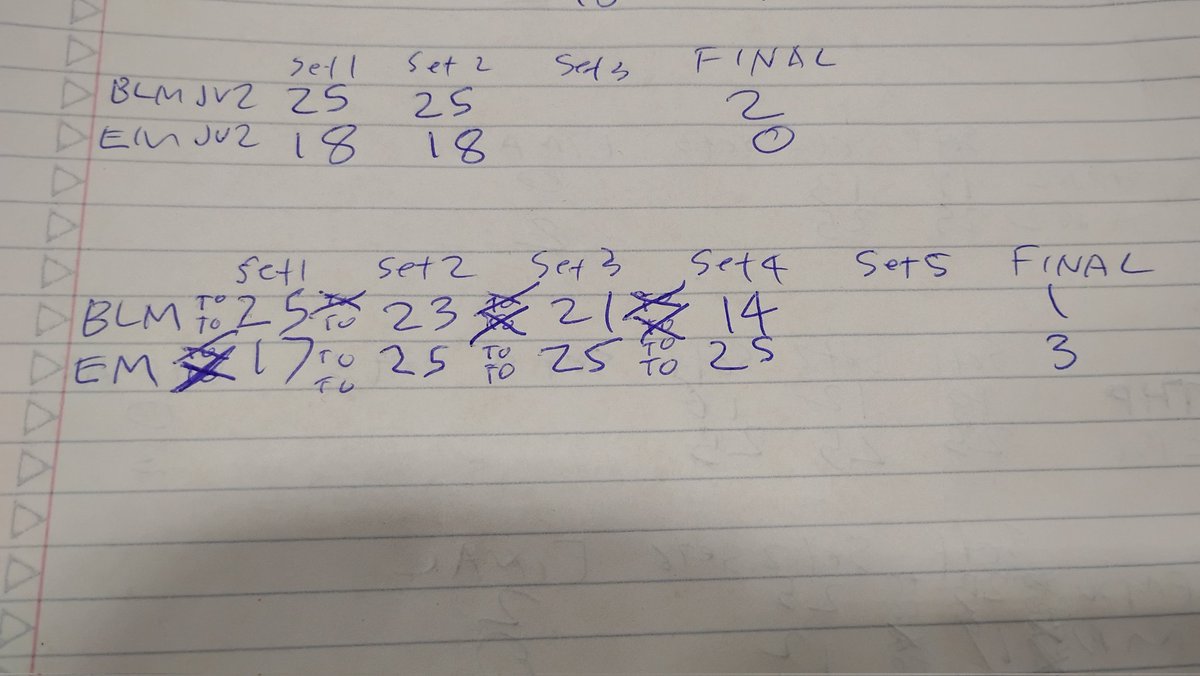 Set 1 Set 2 Set 3 FINAL
BLM JV2 25 25 2
EM JV2 18 18 0
Set 1 Set 2 Set 3 Set 4 Set 5 FINAL
BLM TO TO 25 TO 23 21 14 1
EM 17 TO TO 25 TO TO 25 TO TO 25 3